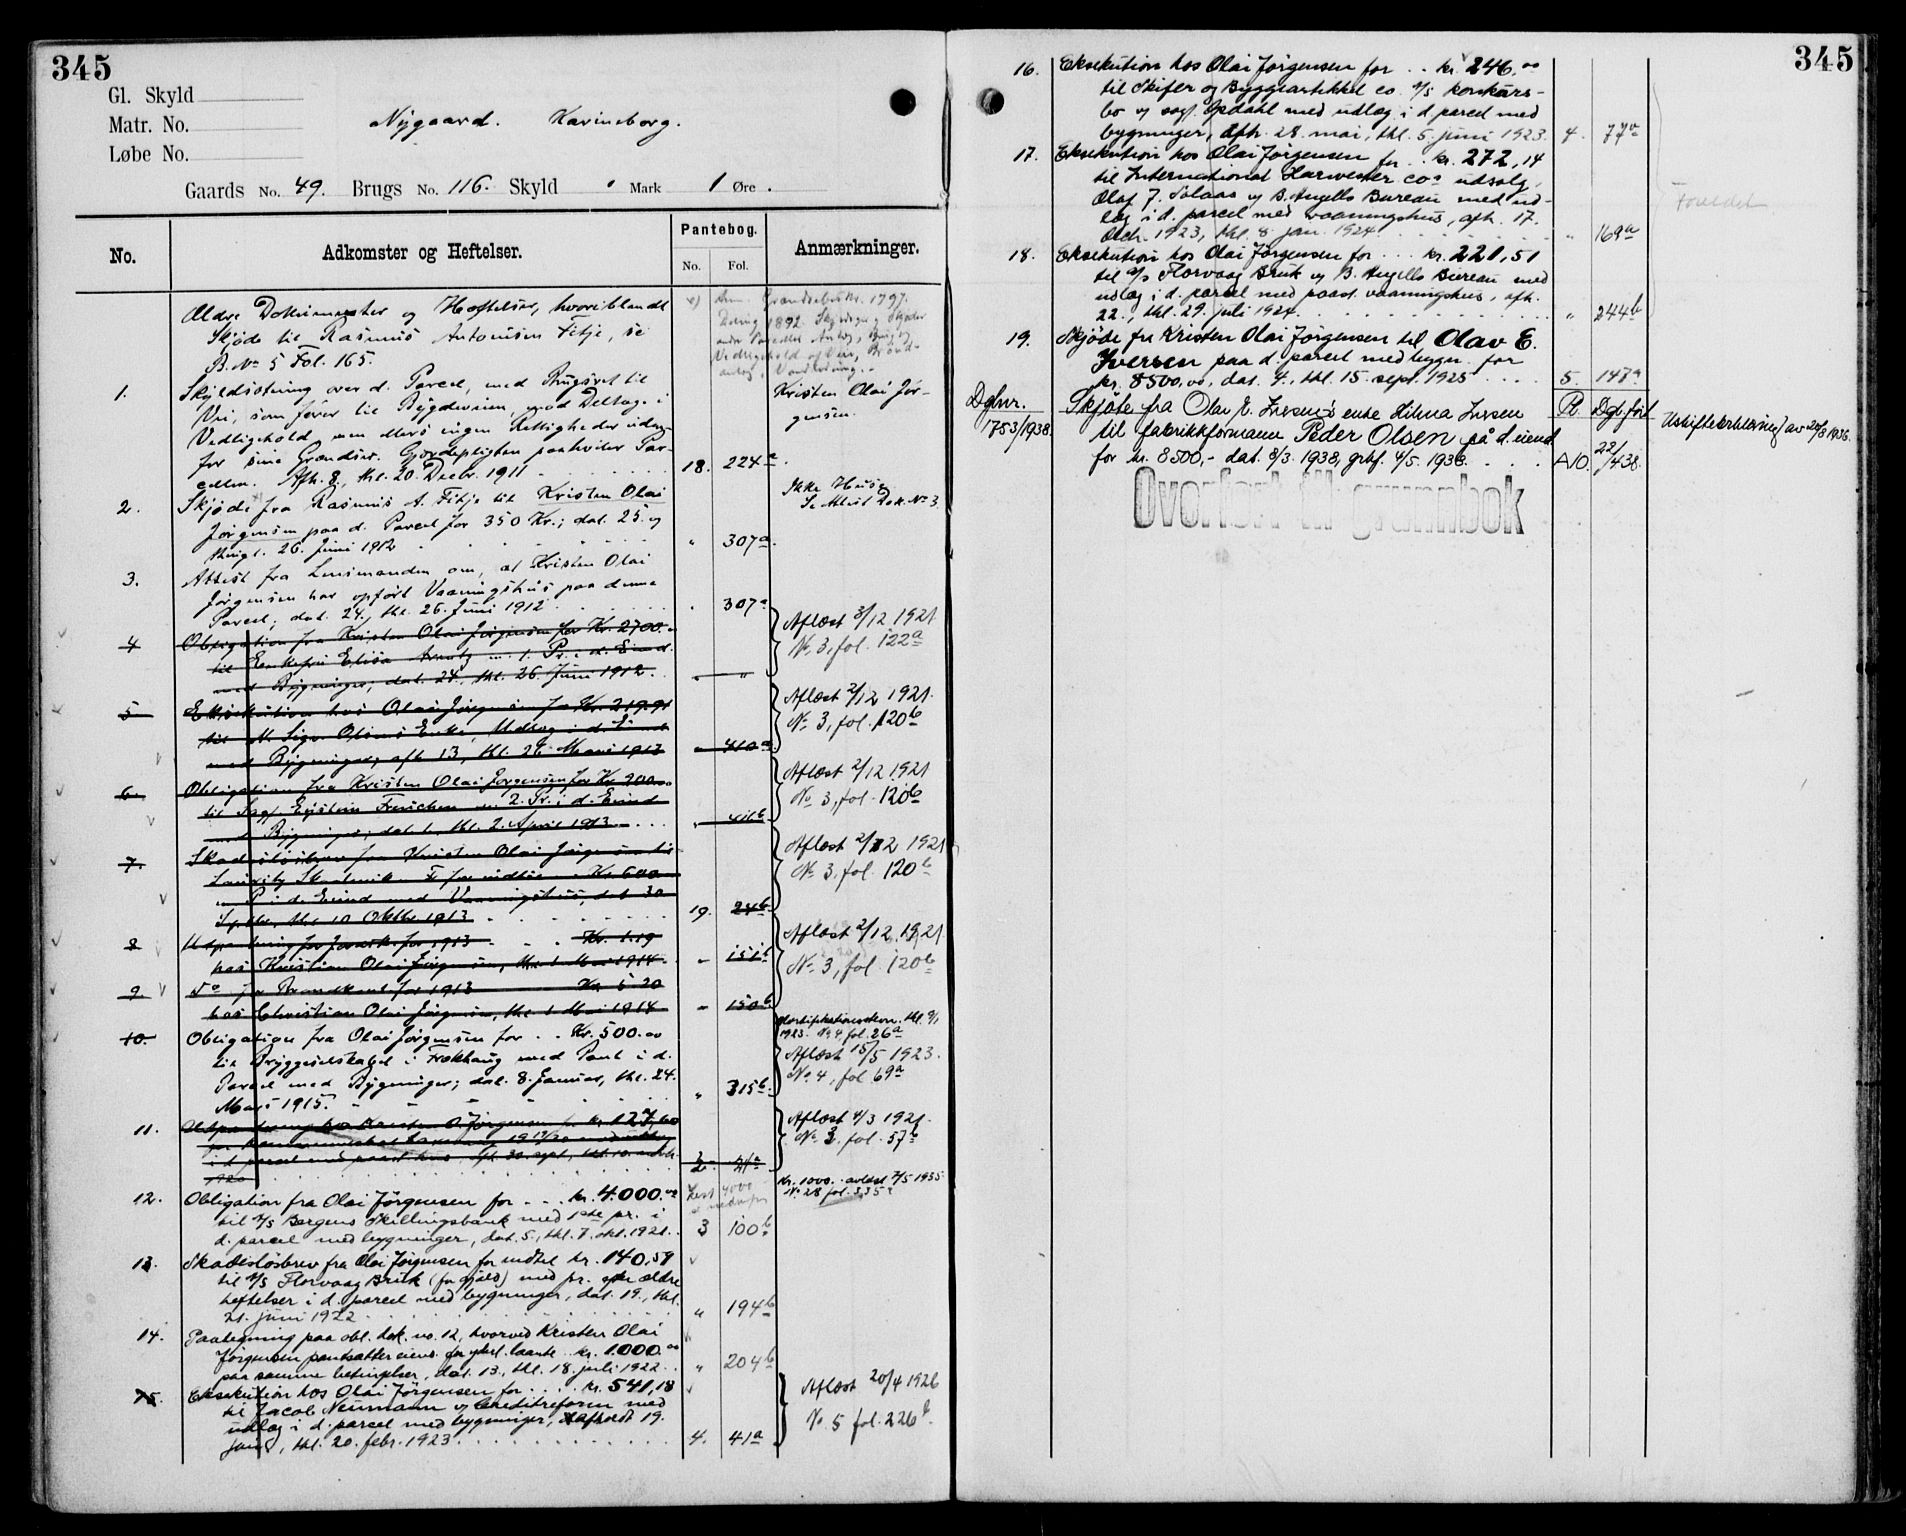 345
Gl. Skyld
Matr. No.
Løbe No.
Nygaard. Karineborg.
Gaards No. 49. Brugs No. 116. Skyld " Mark 1 Øre.
No.
Adkomster og Heftelser.
Pantebog.
No. Fol.
Anmærkninger.
Ældre Dokumenter og Heftelser, hvoriblandt
Skjøde til Rasmus Antonsen Fitje, se
B. No 5 Fol. 165.
1. Skyldsetning over d. Parcel, med Brugsret til
Vei, som fører til Bygdeveien, mod Deltag. i
Vedligehold, men ellers ingen Rettigheder uden-
for sine Grændser. Gjerdepligten paahviler Par-
cellen. Afh. 8., thl. 20. Decbr. 1911 18. 224a
Kristen Olai Jør-
gensen.
2. Skjøde fra Rasmus A. Fitje til Kristen Olai
Jørgensen paa d. Parcel for 350 Kr.; dat. 25. og
thingl. 26. Juni 1912 " 307a
Ikke Huse
Se Attest Dok. No 3
3. Attest fra Lensmanden om, at Kristen Olai
Jørgensen har opført Vaaningshus paa denne
Parcel; dat. 24., thl. 26. Juni 1912 " 307a
4 Obligation fra Kristen Olai Jørgensen for Kr. 2700.
til Enkefru Elisa m. 1. Pr. i d. Eiend.
med Bygninger, dat. 24., thl. 26. Juni 1912. " "
Aflæst 3/12 1921
No. 3, fol. 122a
5 Eksekution hos Olai Jørgensen for Kr. 219.91
til Sigv. Olsens Enke, Udlæg i d. Eiend
med Bygninger, afh. 13, thl. 26. Mars 1913 " 410a
Aflæst 2/12 1921.
No 3, fol. 120b
6. Obligation fra Kristen Olai Jørgensen for Kr. 200
til Sagf. Eystein m. 2. Pr. i d. Eiend
Bygninger, dat. 1., thl. 2. April 1913 " 411b
Aflæst 2/12 1921
No. 3, fol. 120b
7. Skadesløsbrev fra Kristen Olai Jørgensen til
for indtil Kr. 600
Pr. i d. Eiend med Vaaningshus, dat 30
Septbr, thl. 10 Oktbr 1913 19. 24b
Aflæst 2/12 1921
No 3, fol. 120b
8 Udpantning for 1913 Kr. 1.19
hos Kristian Olai Jørgensen, thl. 1 Mai 1914 " 151b
Aflæst 2/12 1921
No 3, fol. 120b
9 Do for Brandkont. for 1913 Kr. 5 20
hos Christian Olai Jørgensen, thl 1 Mai 1914 " 150b
10. Obligation fra Olai Jørgensen for Kr. 500.00
til Bryggeselskabet i Frekhaug med Pant i d.
Parcel med Bygninger; dat. 8. Januar, thl. 24.
Mars 1915. " 315b
1923. No 4 fol. 26a
Aflæst 15/5 1923.
No. 4, fol 69a
11. Udpantning hos Kristen O. Jørgensen for kr. 127,60
i d. parcel med paast. hus, afh. 30. sept., thl. 10. 
1920 2 21a
Aflæst 4/3 1921.
No. 3. fol. 57b
12. Obligation fra Olai Jørgensen for kr. 4.000.00
til A/S Bergens Skillingsbank med 1ste pr. i
d. parcel med bygninger, dat. 5., thl. 7. okt. 1921. 3 100b
Kr. 1000.- avlæst 7/5 1935
No. 28 fol. 335a
13. Skadesløsbrev fra Olai Jørgensen for indtil kr. 140,59
til A/S Florvaag Bruk (for gjæld) med pr. efter ældre
heftelser i d. parcel med bygninger, dat. 19., thl.
21. juni 1922 " 194b
14. Paategning paa obl. dok. no. 12, hvorved Kristen Olai
Jørgensen pantsætter eiend. for yderl. laante kr. 1.000.00
paa samme betingelser, dat. 13., thl. 18. juli 1922 " 204b
15. Eksekution hos Olai Jørgensen for kr. 541,18
til Jacob Neumann v/ Creditreform med
udlæg i d. parcel med bygninger, afholdt 19.
jan., thl. 20. febr. 1923 4. 41a
Aflæst 20/4 1926
No. 5 fol. 226b.
345
16. Eksekution hos Olai Jørgensen for kr. 246.00
til Skifer og Byggeartikkel co. A/S konkurs-
bo v/ sagf. Opdahl med udlæg i d. parcel med
bygninger, afh. 28. mai, thl. 5. juni 1923 4. 77a
17. Eksekution hos Olai Jørgensen for kr. 272,14
til International Harvester Co's udsalg,
Olaf J. Solaas v/ B. Angells Bureau med ud-
læg i d. parcel med vaaningshus, afh. 17.
1923, thl. 8. jan. 1924 " 169a
Foreldet
18. Eksekution hos Olai Jørgensen for kr. 221,51
til A/S Florvaag Bruk v/ B. Angells Bureau med
udlæg i d. parcel med paast. vaaningshus, afh.
22., thl. 29. juli 1924 " 244b
19. Skjøde fra Kristen Olai Jørgensen til Olav E.
Iversen paa d. parcel med bygn. for
kr. 8500,00, dat. 4., thl. 15. sept. 1925 5. 147a
Dgbnr.
1753/1938
Skjøte fra Olav E. Iversen's enke Hilma Iversen
til fabrikkformann Peder Olsen på d. eiend.
for kr. 8500,- dat. 8/3 1938, grbf. 4/5 1938.
A10. 23/438
Uskifteerklæring av 20/8 1936.
Overført til grunnbok